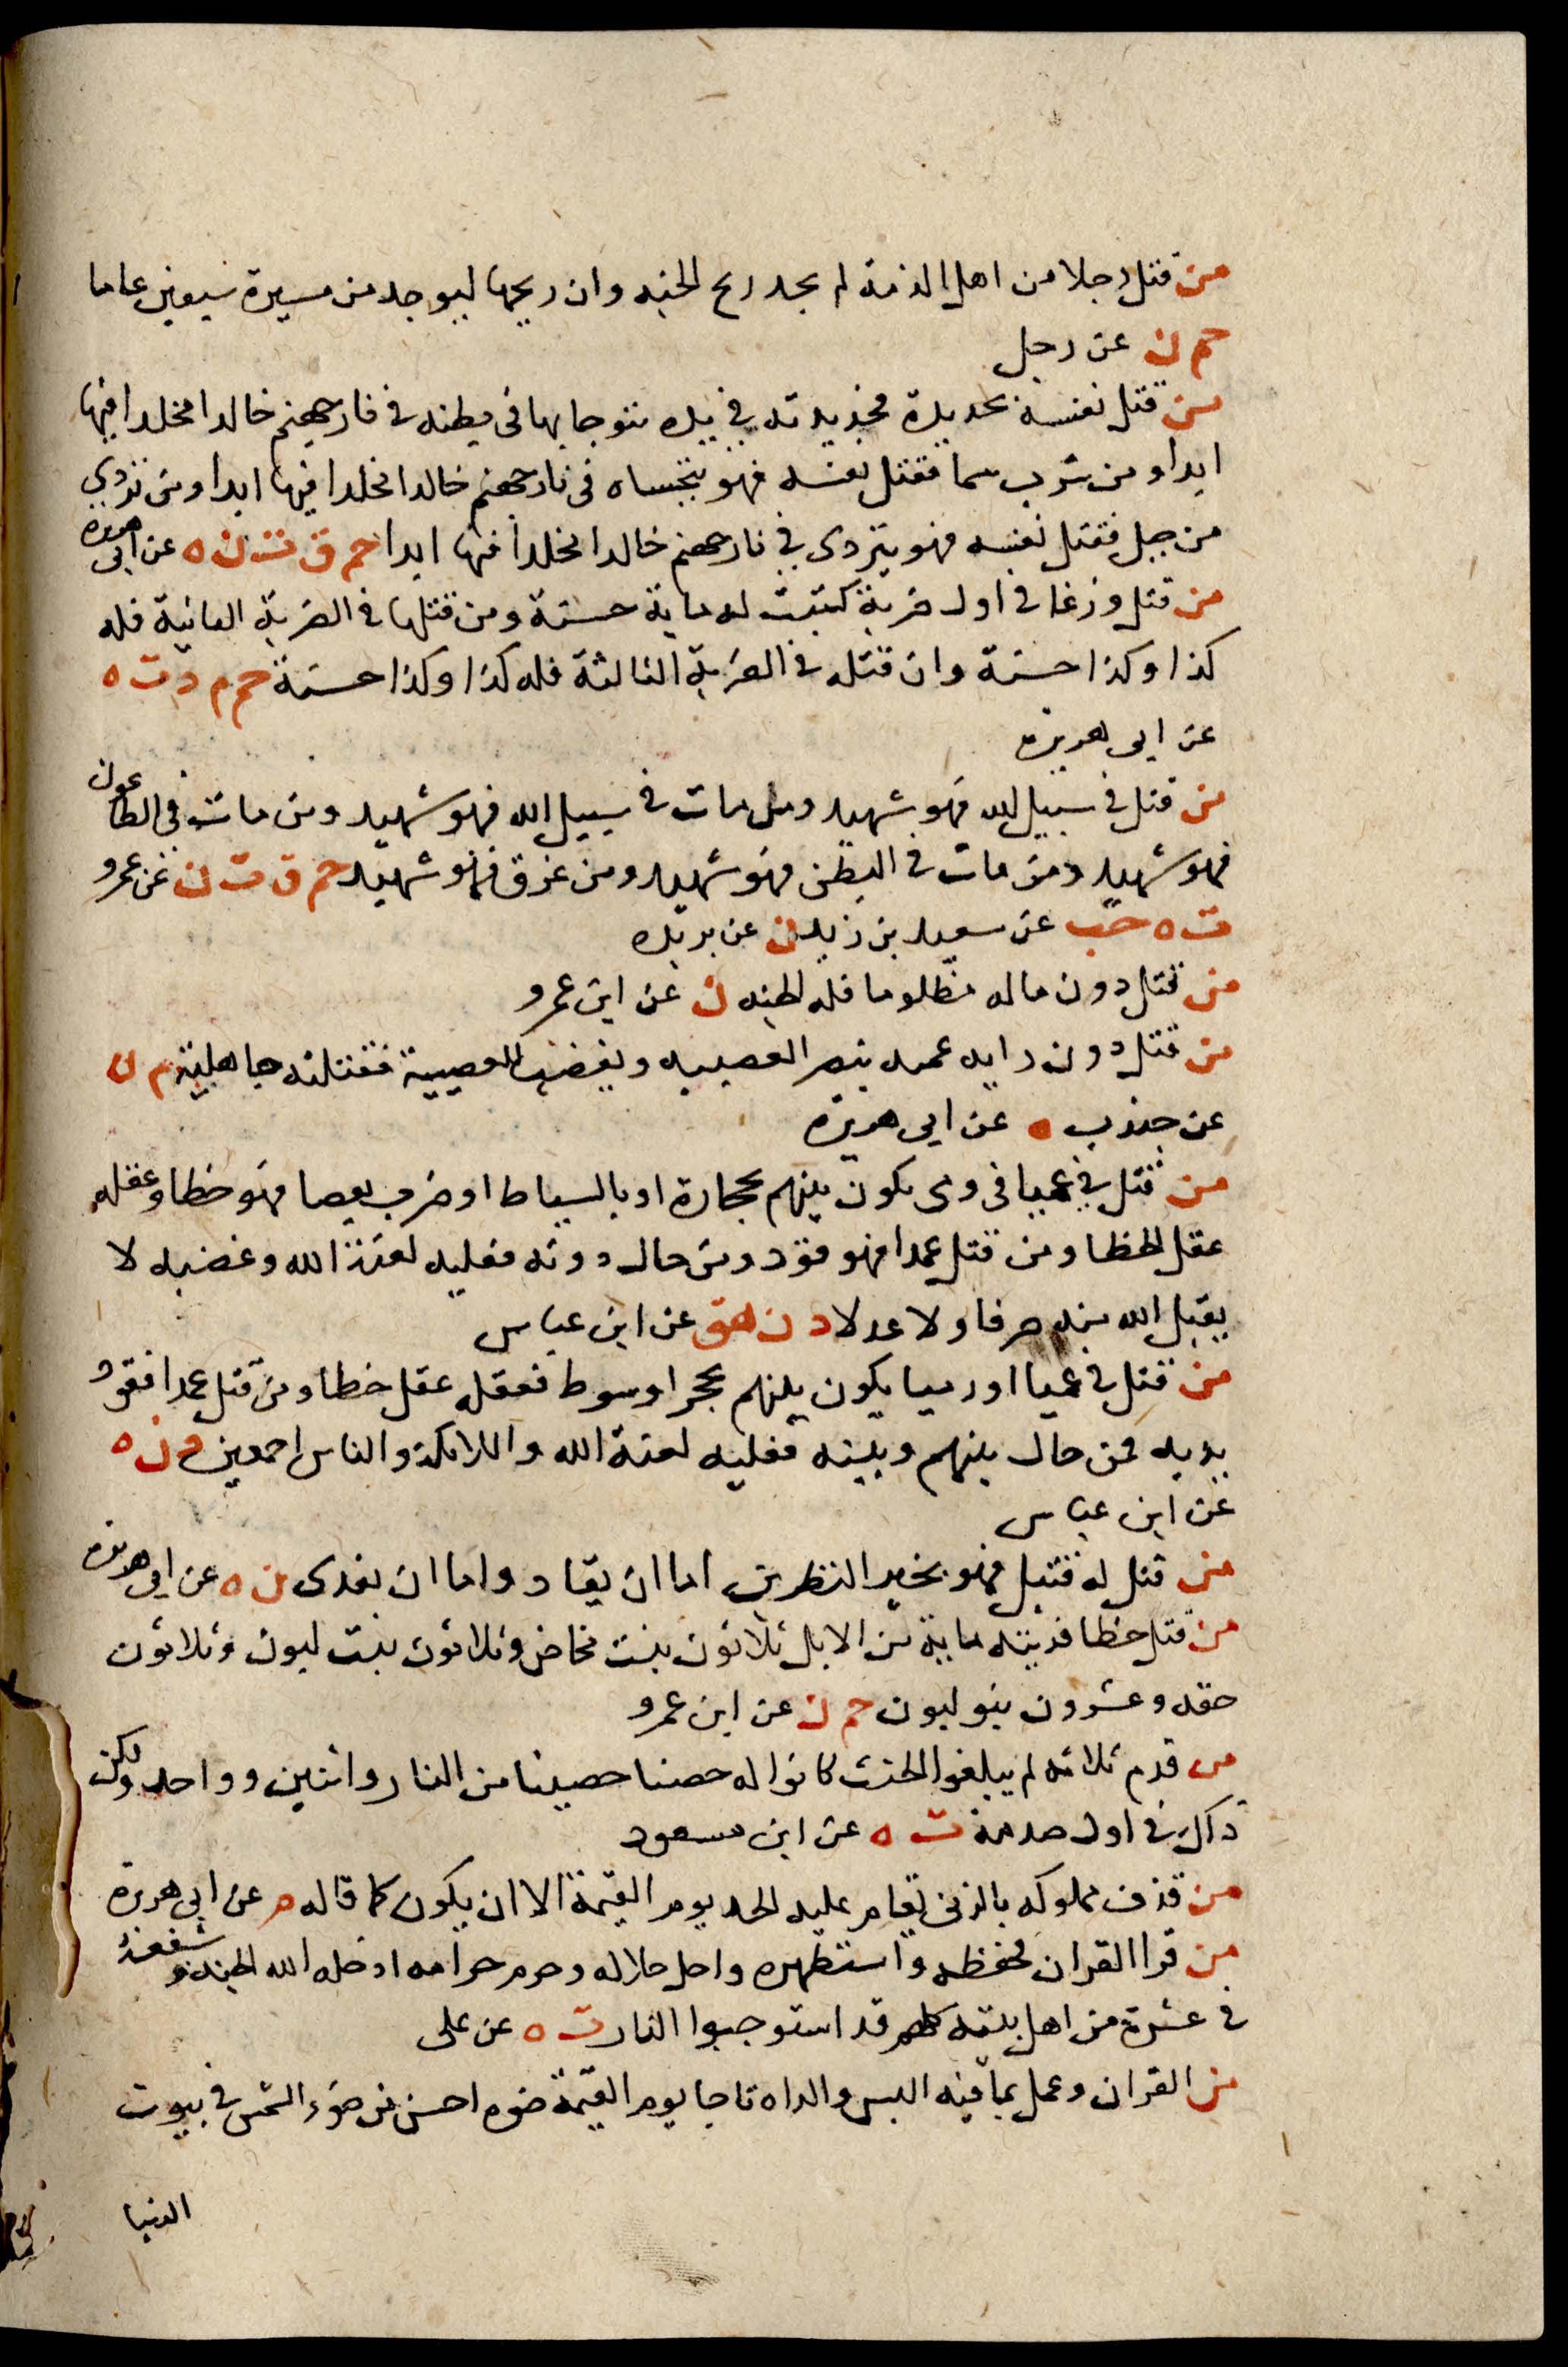 من قتل رجلا من اهل الذمة لم يجد ريح الجنه وان ريحها ليوجد من مسيرة سبعين عاما
حم ن عن رجل
من قتل نفسه بحديدة فحديدته في يده يتوجا بها في بطنه في نار جهنم خالدا مخلدا فيها
ابدا ومن شرب سما فقتل نفسه فهو يتحساه في نار جهنم خالدا مخلدا فيها ابدا ومن تردي
من جبل فقتل نفسه فهو يتردى في نار جهنم خالدا مخلدا فيها ابدا حم ق ت ن ه عن ابي هريرة
من قتل وزغا في اول ضربة كتبت له ماية حسنة ومن قتلها في الضربة الثانية فله
كذا وكذا حسنة وان قتله في الضربة الثالثة فله كذا وكذا حسنة حم م د ت ه
عن ابي هريرة
من قتل في سبيل الله فهو شهيد ومن مات في سبيل الله فهو شهيد ومن مات في الطاعون
فهو شهيد ومن مات في البطن فهو شهيد ومن غرق فهو شهيد حم ق ت ن عن عمرو
ت ه حب عن سعيد بن زيد ن عن بريده
من قتل دون ماله مظلوما فله الجنه ن عن ابن عمرو
من قتل دون رايه عميه ينصر العصبيه ويغضب للعصبية فقتلته جاهلية م ن
عن جندب ه عن ابي هريرة
من قتل في عميا في رمى يكون بينهم بحجارة او بالسياط او ضرب بعصا فهو خطا وعقله
عقل الخطا ومن قتل عمدا فهو قود ومن حال دونه فعليه لعنة الله وغضبه لا
يقبل الله منه صرفا ولا عدلا د ن هق عن ابن عباس
من قتل في عميا او رميا يكون بينهم بحجر او سوط فعقله عقل خطا ومن قتل عمدا فقود
يديه فمن حال بينهم وبينه فعليه لعنة الله والملايكة والناس اجمعين د ن ه
عن ابن عباس
من قتل له قتيل فهو بخير النظرين اما ان يقاد واما ان يفدى ن ه عن ابي هريرة
من قتل خطا فديته ماية من الابل ثلاثون بنت مخاض وثلاثون بنت لبون وثلاثون
حقه وعشرون بنو لبون حم ن عن ابن عمرو
من قدم ثلاثه لم يبلغوا الحنث كانوا له حصنا حصينا من النار واثنين وواحد ولكن
ذاك في اول صدمة ت ه عن ابن مسعود
من قذف مملوكه بالزنى يقام عليه الحد يوم القيمة الا ان يكون كما قاله م عن ابي هريرة
من قرا القران فحفظه واستظهره واحل حلاله وحرم حرامه ادخله الله الجنه وشفعه
في عشرة من اهل بيته كلهم قد استوجبوا النار ت ه عن على
من القران وعمل بما فيه البس والداه تاجا يوم القيمة ضوه احسن من ضوء الشمس في بيوت
الدنيا